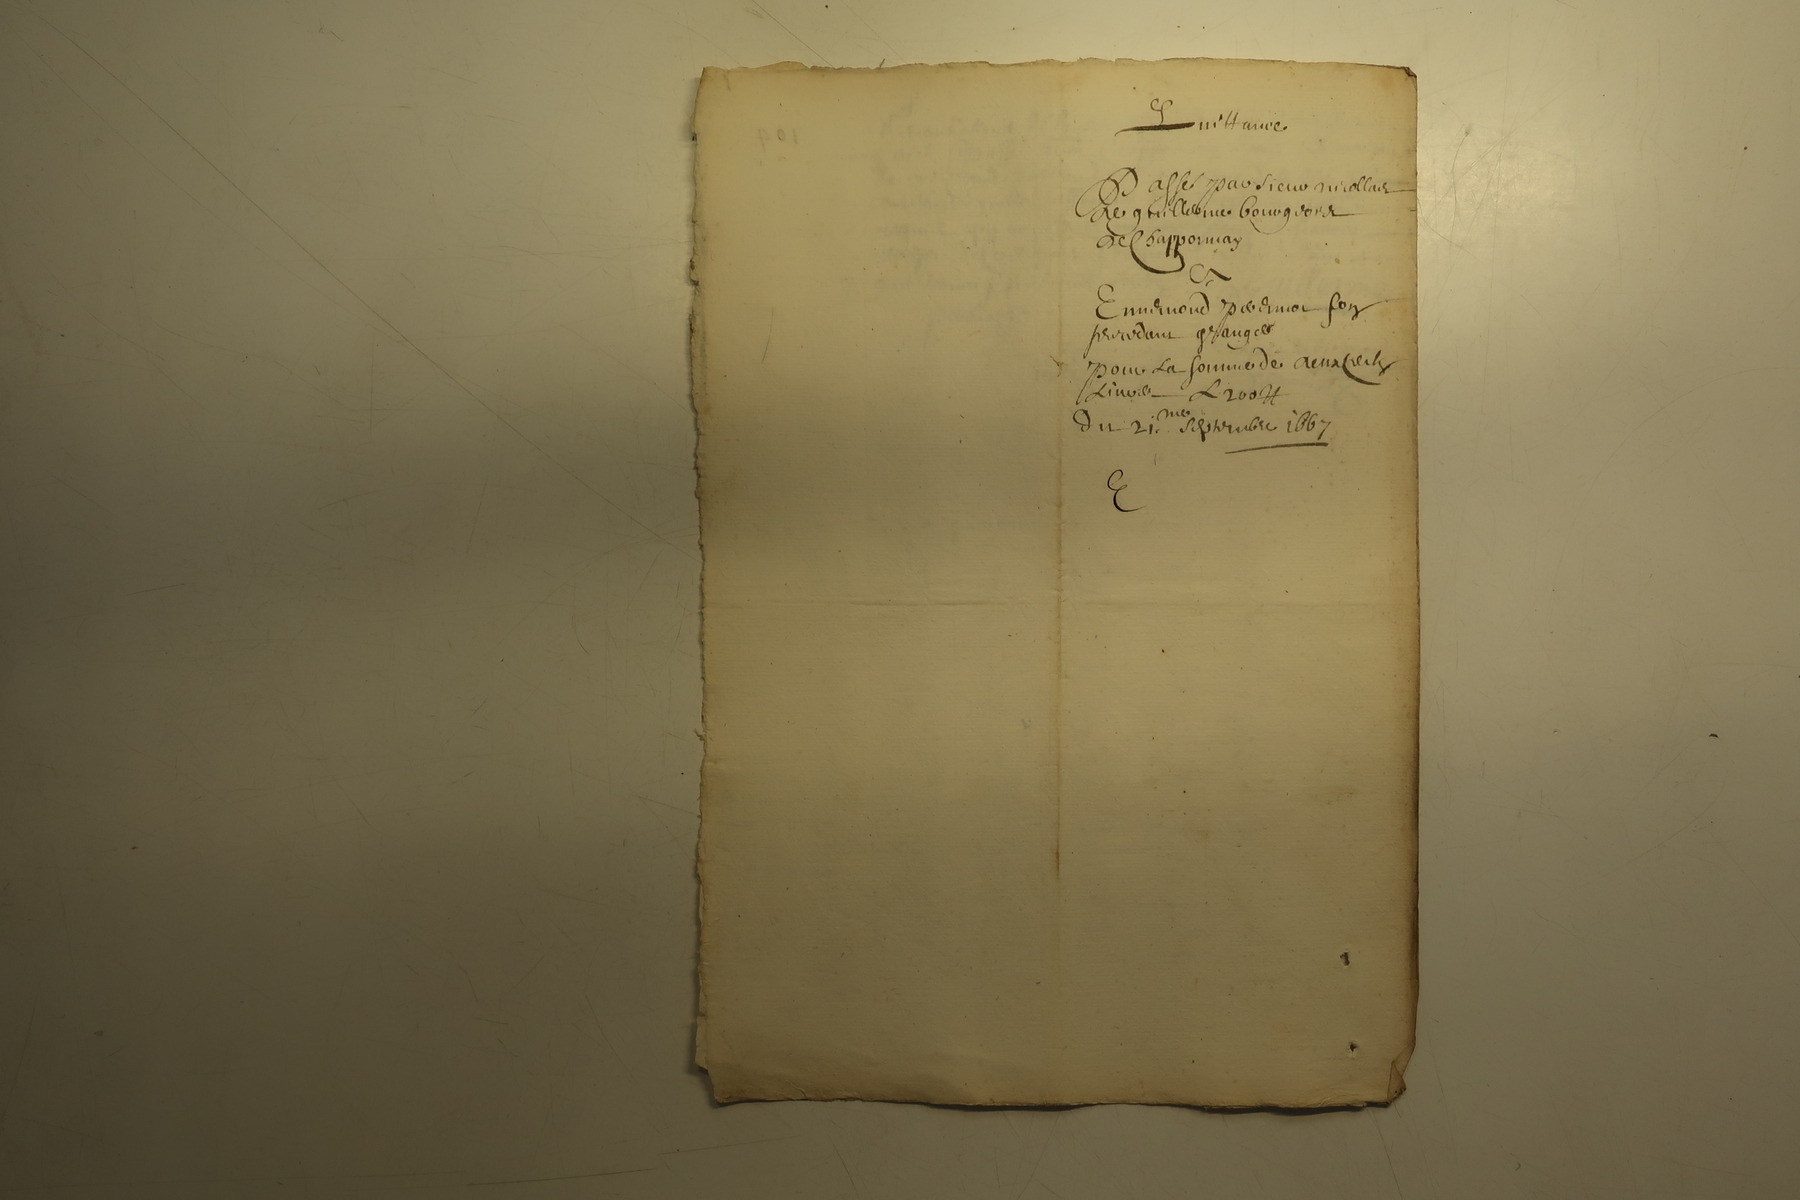 Quittance
Passé par sieur nicollas
de guillerme bourgeois
de Chapponnay
A
Ennemond pour son
granges
pour La somme de deux cents
Livres L 200 ₶
Du 21.me Septembre 1667
C